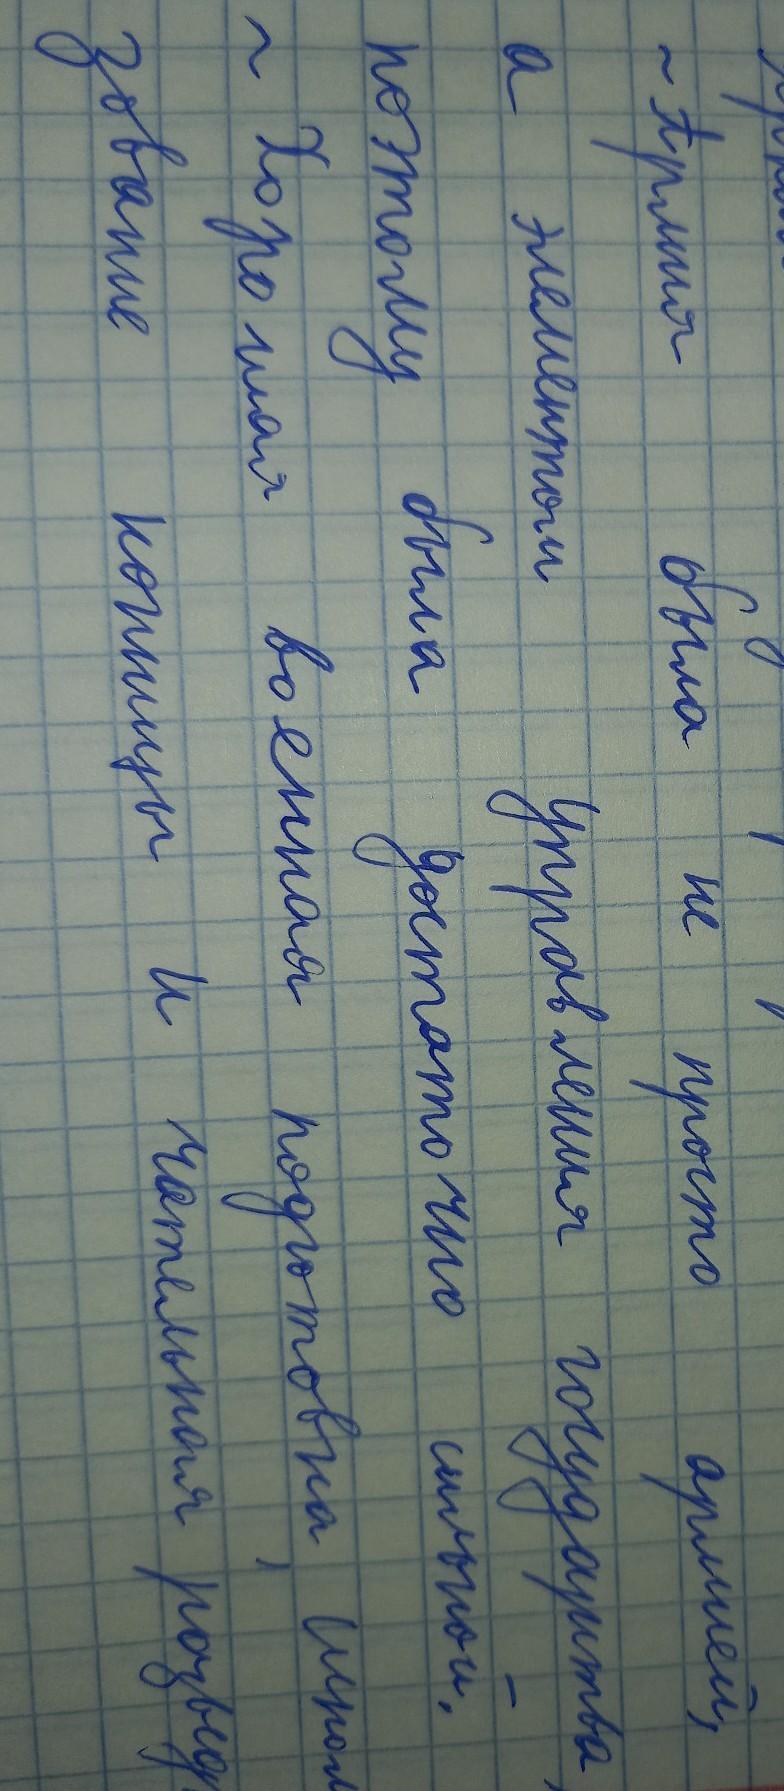 ~ Армия была не просто армией,
а элементом управления государства,
поэтому была достаточно сильной.
~ Хорошая военная подготовка,
зование конницы и чательная развед